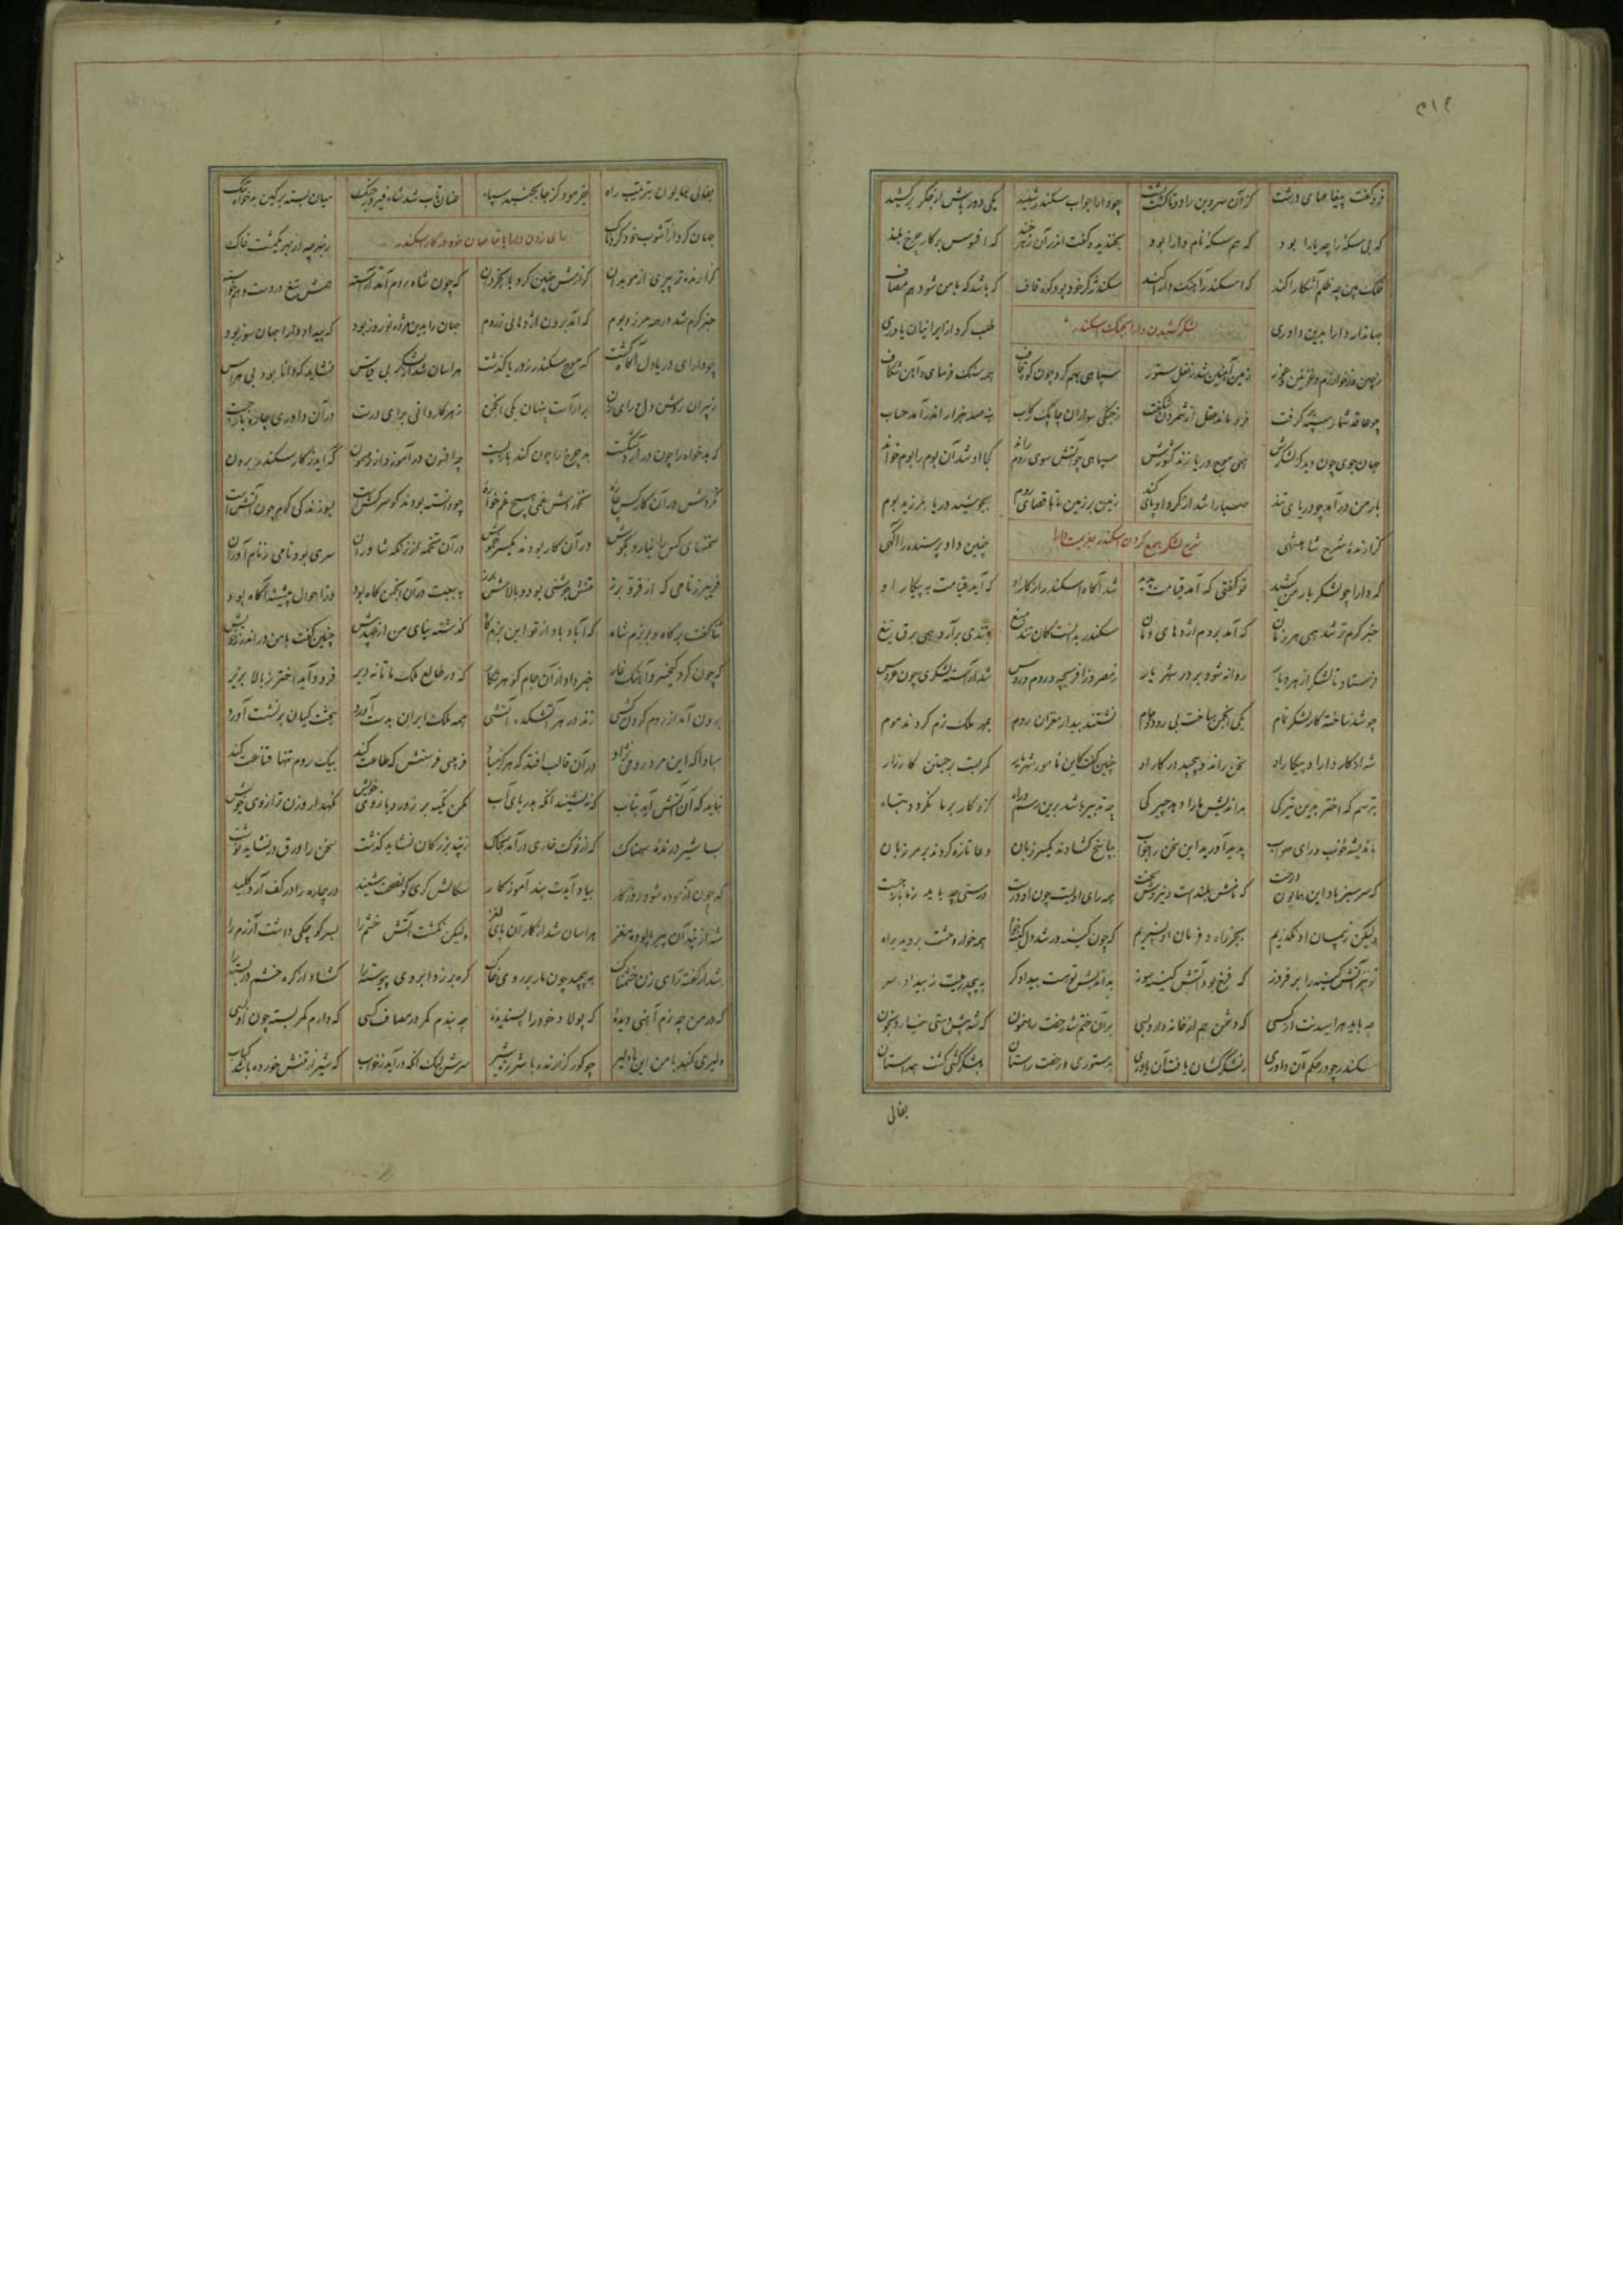 فروگفت پیغامهای درشت کزان سرو بن را دوتا گشت پشت چو دارا جواب سکندر شنید یکی دور باش از جگر برکشید
که بی سکه را چه یارا بود که هم سکه نام دارا بود بخندید و گفت اندر آن زهرخند که افسوس بر کار چرخ بلند
فلک بین چه ظلم آشکارا کند که اسکندر آهنگ دارا کند سکندر نه گر خود بود کوه قاف که باشد که با من شود هم مصاف
جهاندار دارا بدین داوری لشکر کشیدن دارا بجنگ اسکندر طلب کرد از ایرانیان یاوری
ز چین و ز خوارزم و غزنین و غور زمین آهنین شد ز نعل ستور سپاهی بهم کرد چون کوه قاف همه سنگ فرسای و آهن شکاف
چو عاقد شمار سپه برگرفت فرو ماند عقل از شمردن شگفت ز جنگی سواران چابک رکاب به نهصد هزار اندر آمد حساب
جهان جوی چون دید کز لشکرش همی موج دریا زند کشورش سپاهی چو آتش سوی روم راند کجا او شد آن بوم را بوم خواند
بارمن درآمد چو دریای تند صبا را شد از گرد او پای کند زمین بر زمین تا باقصای روم بجوشید دریا بلرزید بوم
گزارنده شرح شاهنشهی شرح لشکر جمع کردن اسکندر بعزیمت دارا چنین داد پرسنده را آگهی
که دارا چو لشکر بارمن کشید تو گفتی که آمد قیامت پدید شد آگاه اسکندر از کار او که آید قیامت به پیکار او
خبر گرم تر شد همی هر زمان که آمد بروم اژدهای دمان سکندر بدانست کان تند میغ بتندی برآرد همی برق تیغ
فرستاد تا لشکر از هر دیار روانه شود بر در شهریار ز مصر و ز افرنجه و روم و روس شد آراسته لشکری چون عروس
چو شد ساخته کار لشکر تمام یکی انجمن ساخت بی رود و جام نشستند بیدار مغزان روم بمهر ملک نرم کردند موم
شه از کار دارا و پیکار او سخن راند و پیچید در کار او چنین گفت کاین نامور شهریار کمر بست بر جستن کارزار
بترسم که اختر بدین تیرگی بداندیش ما را دهد چیرگی چه تدبیر باشد برین رسم و راه کزو کار بر ما نگردد تباه
باندیشه خوب و رای صواب پدید آورید این سخن را جواب بپاسخ گشادند یکسر زبان دعا تازه کردند بر مرزبان
که سرسبز باد این همایون درخت که شاخش بلندست و نیروش سخت همه رای او هست چون او درست درستی چه باید ز ما باز جست
ولیکن ز پیمان او نگذریم بجز راه و فرمان او نسپریم که چون کینه ور شد دل کینه خواه همه خار وحشت بروید براه
تو نیز آتش کینه را بر فروز که فرخ بود آتش کینه سوز بداندیش تو هست بیدادگر به پیچد رعیت ز بیداد سر
چه باید هراسیدنت از کسی که دشمن هم از خانه دارد بسی بر آن ختم شد رهنمون که شه پیش دستی نیارد بخون
سکندر چو در حکم آن داوری ز لشگرکشان یافت آن یاوری بدستوری رخصت راستان بلشگرکشی گشت همداستان
بفالی
بفالی همایون بترتیب راه بفرمود کز جا بجنبد سپاه عنان تاب شد شاه فیروز جنگ میان بسته بر کین بدخواه تنگ
جهان کرد از آشوب خود دردناک رای زدن دارا با خاصان خود در کار سکندر ز بهر چه از بهر یکمشت خاک
گزارنده تر پیری از موبدان گزارش چنین کرد با بخردان که چون شاه روم آمد آراسته همش تیغ در دست و هم خواسته
خبر گرم شد در همه مرز و بوم که آمد برون اژدهائی ز روم جهان را بدین مژده نوروز بود که بیداد دارا جهان سوز بود
چو دارای دریادل آگاه گشت که موج سکندر ز دریا گذشت هراسان شد از لشکر بی قیاس نشاید که دانا بود بی هراس
ز پیران روشن دل رای زن برآراست پنهان یکی انجمن ز هر کاردانی برای درست در آن داوری چاره باز جست
که بدخواه را چون درآرد شکست بد چرخ را چون کند باز بست چه افسون درآموزد از رهنمون که آید ز کار سکندر برون
نکردش در آن کار کس چاره نخوردش غمی هیچ غم خواره چو دانسته بودند کو سرکشست بسوزندگی گرم چون آتشست
سخنهای کس را نیارد بگوش در آن کار بودند یکسر خموش در آن تخمه از زنگه شاوران سری بود نامی ز نام آوران
فریبرز نامی که از فر و برز تنش جوشنی بود و بالاش گرز به بیعت در آن انجمن گاه بود ز احوال پیشینه آگاه بود
ثنا گفت بر گاه و بر بزم شاه که آباد باد از تو این بزمگاه گذشته نیای من از عهد پیش چنین گفت با من در اندرز خویش
که چون کرد کیخسرو آهنگ غار خبر داد از آن جام گوهر نگار که در طالع ملک ما تا نه دیر فرود آید اختر ز بالا بزیر
برون آید از روم گردن کشی زند در هر آتشکده آتشی همه ملک ایران بدست آورد بتخت کیان بر نشست آورد
مبادا که این مرد رومی نژاد در آن قالب افتد که هرگز مباد فرومی فرستش که طاعت کند بیک روم تنها قناعت کند
نباید که آن آتش آید بتاب که ننشیند آنگه بدریای آب مکن تکیه بر زور و بازوی خویش نگهدار وزن ترازوی خویش
بسا شیر درنده سهمناک که از نوک خاری درآمد بخاک ز پند بزرگان نشاید گذشت سخن را ورق در نشاید نوشت
که چون آزموده شود روزگار بیاد آیدت پند آموزگار سگالش گری کو نصیحت شنید در چاره را در کف آرد کلید
شه از پند آن پیر پالوده مغز هراسان شد از کار آن پای لغز ولیکن نکشت آتش خشم را بسر کوچکی داشت آزرم را
شد از گفته رای زن خشمناک به پیچید چون مار بر روی خاک گره بر زد ابروی پیوسته را گشاد از گره خشم دربسته را
که در من چه نرم آهنی دیده که پولاد خود را پسندیده چه بندم کمر در مصاف کسی که دارم کمر بسته چون او بسی
دلیری کند با من این نادلیر چو گور گرازنده با شرزه شیر سرش لیک آنگه درآید ز خواب که شیر از تنش خورده باشد کباب